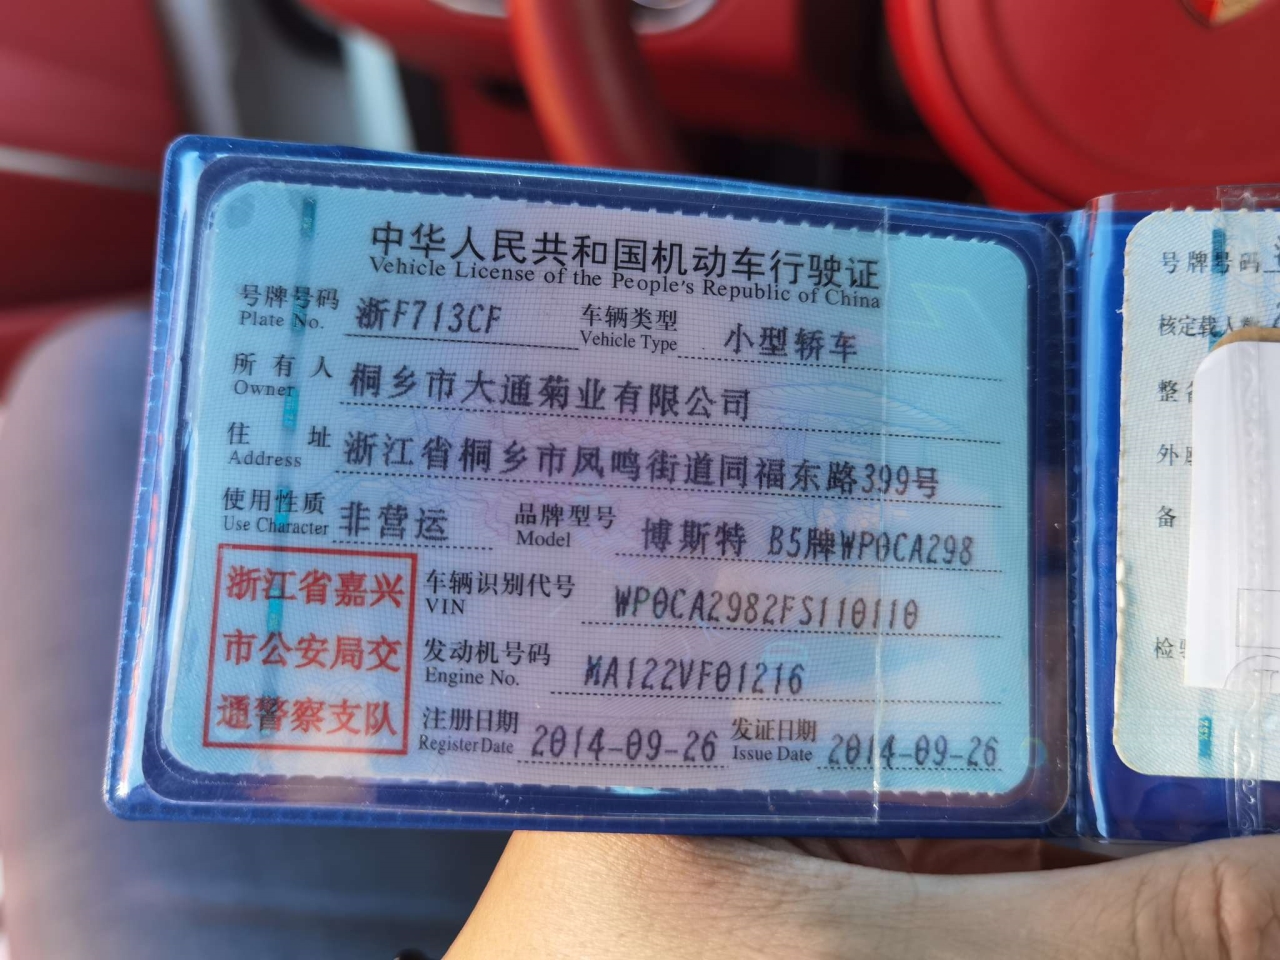 中华人民共和国机动车行驶证
Vehicle License of the People's Republic of China
号牌号码 浙F713CF 车辆类型 小型轿车
Plate No. Vehicle Type
所有人 桐乡市大通菊业有限公司
Owner
住址 浙江省桐乡市凤鸣街道同福东路399号
Address
使用性质 非营运 品牌型号 博斯特 B5牌WP0CA298
Use Character Model
浙江省嘉兴
市公安局交
通警察支队
车辆识别代号 WP0CA2982FS110110
VIN
发动机号码 MA122VF01216
Engine No.
注册日期 2014-09-26 发证日期 2014-09-26
Register Date Issue Date
号牌号码
核定载人
整
外
备
检验